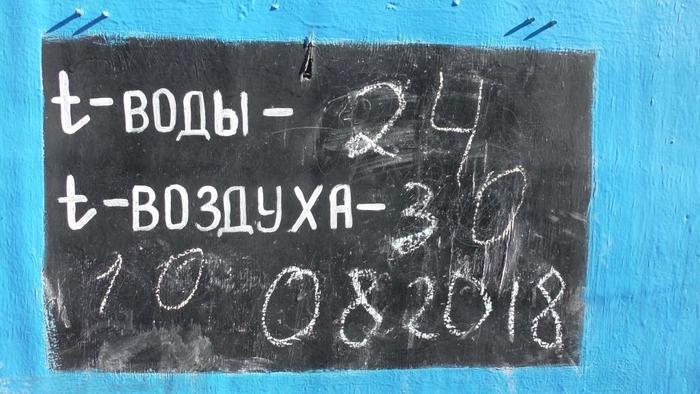 t-ВОДЫ- 24
t-ВОЗДУХА-30
10 08 2018